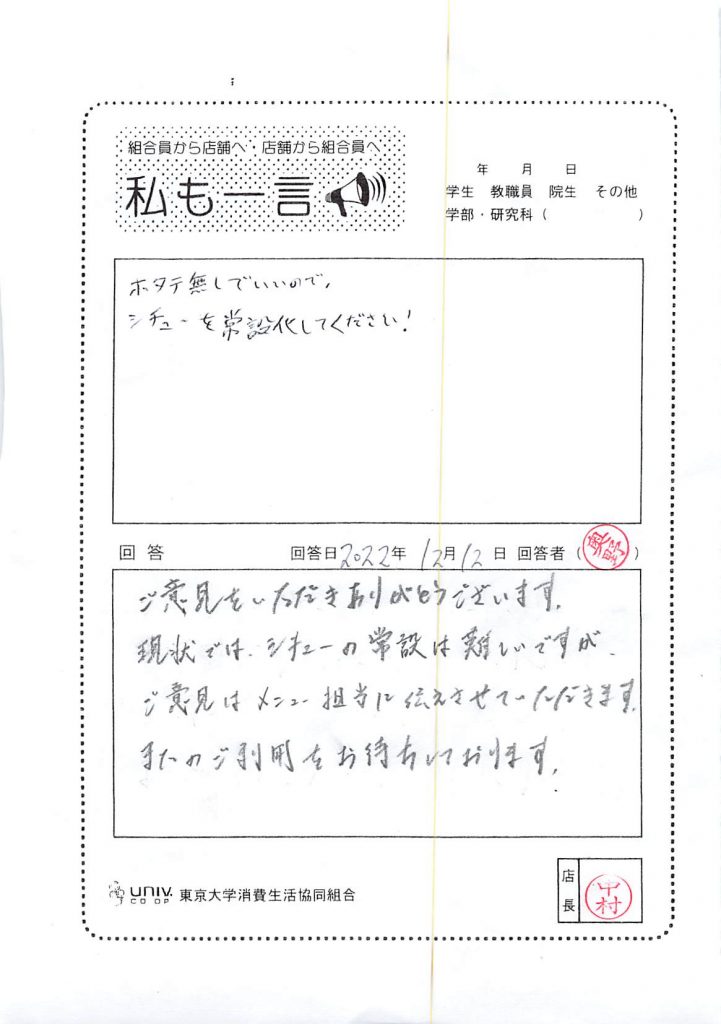 組合員から店舗へ・店舗から組合員へ
私も一言
年 月 日
学生 教職員 院生 その他
学部・研究科( )
ホタテ無しでいいので、
シチューを常設化してください!
回答 回答日2022年 12月12日 回答者( 奥野 )
ご意見をいただきありがとうございます。
現状では、シチューの常設は難しいですが、
ご意見はメニュー担当に伝えさせていただきます。
またのご利用をお待ちしております。
UNIV. CO-OP 東京大学消費生活協同組合
店長 中村